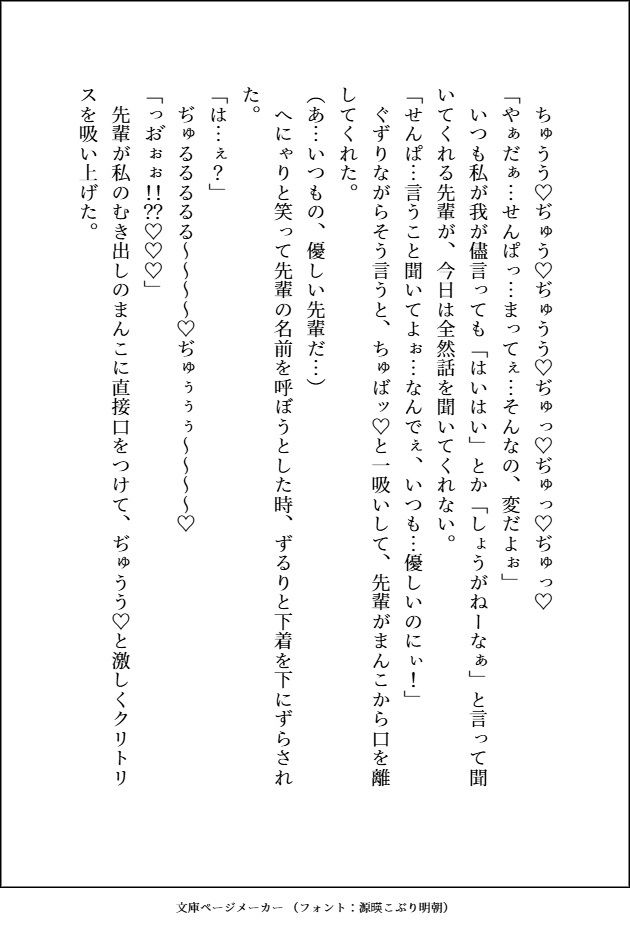 ちゅうう♡ぢゅう♡ぢゅうう♡ぢゅっ♡ぢゅっ♡ぢゅっ♡
「やぁだぁ…せんぱっ…まってぇ…そんなの、変だよぉ」
いつも私が我が儘言っても「はいはい」とか「しょうがねーなぁ」と言って聞
いてくれる先輩が、今日は全然話を聞いてくれない。
「せんぱ…言うこと聞いてよぉ…なんでぇ、いつも…優しいのにぃ！」
ぐずりながらそう言うと、ちゅばッ♡と一吸いして、先輩がまんこから口を離
してくれた。
(あ…いつもの、優しい先輩だ…)
へにゃりと笑って先輩の名前を呼ぼうとした時、ずるりと下着を下にずらされ
た。
「は…ぇ？」
ぢゅるるるるる～～～～♡ぢゅぅぅぅ～～～～♡
「っお゛ぉぉ!!??♡♡♡」
先輩が私のむき出しのまんこに直接口をつけて、ぢゅうう♡と激しくクリトリ
スを吸い上げた。
文庫ページメーカー（フォント：源暎こぶり明朝）